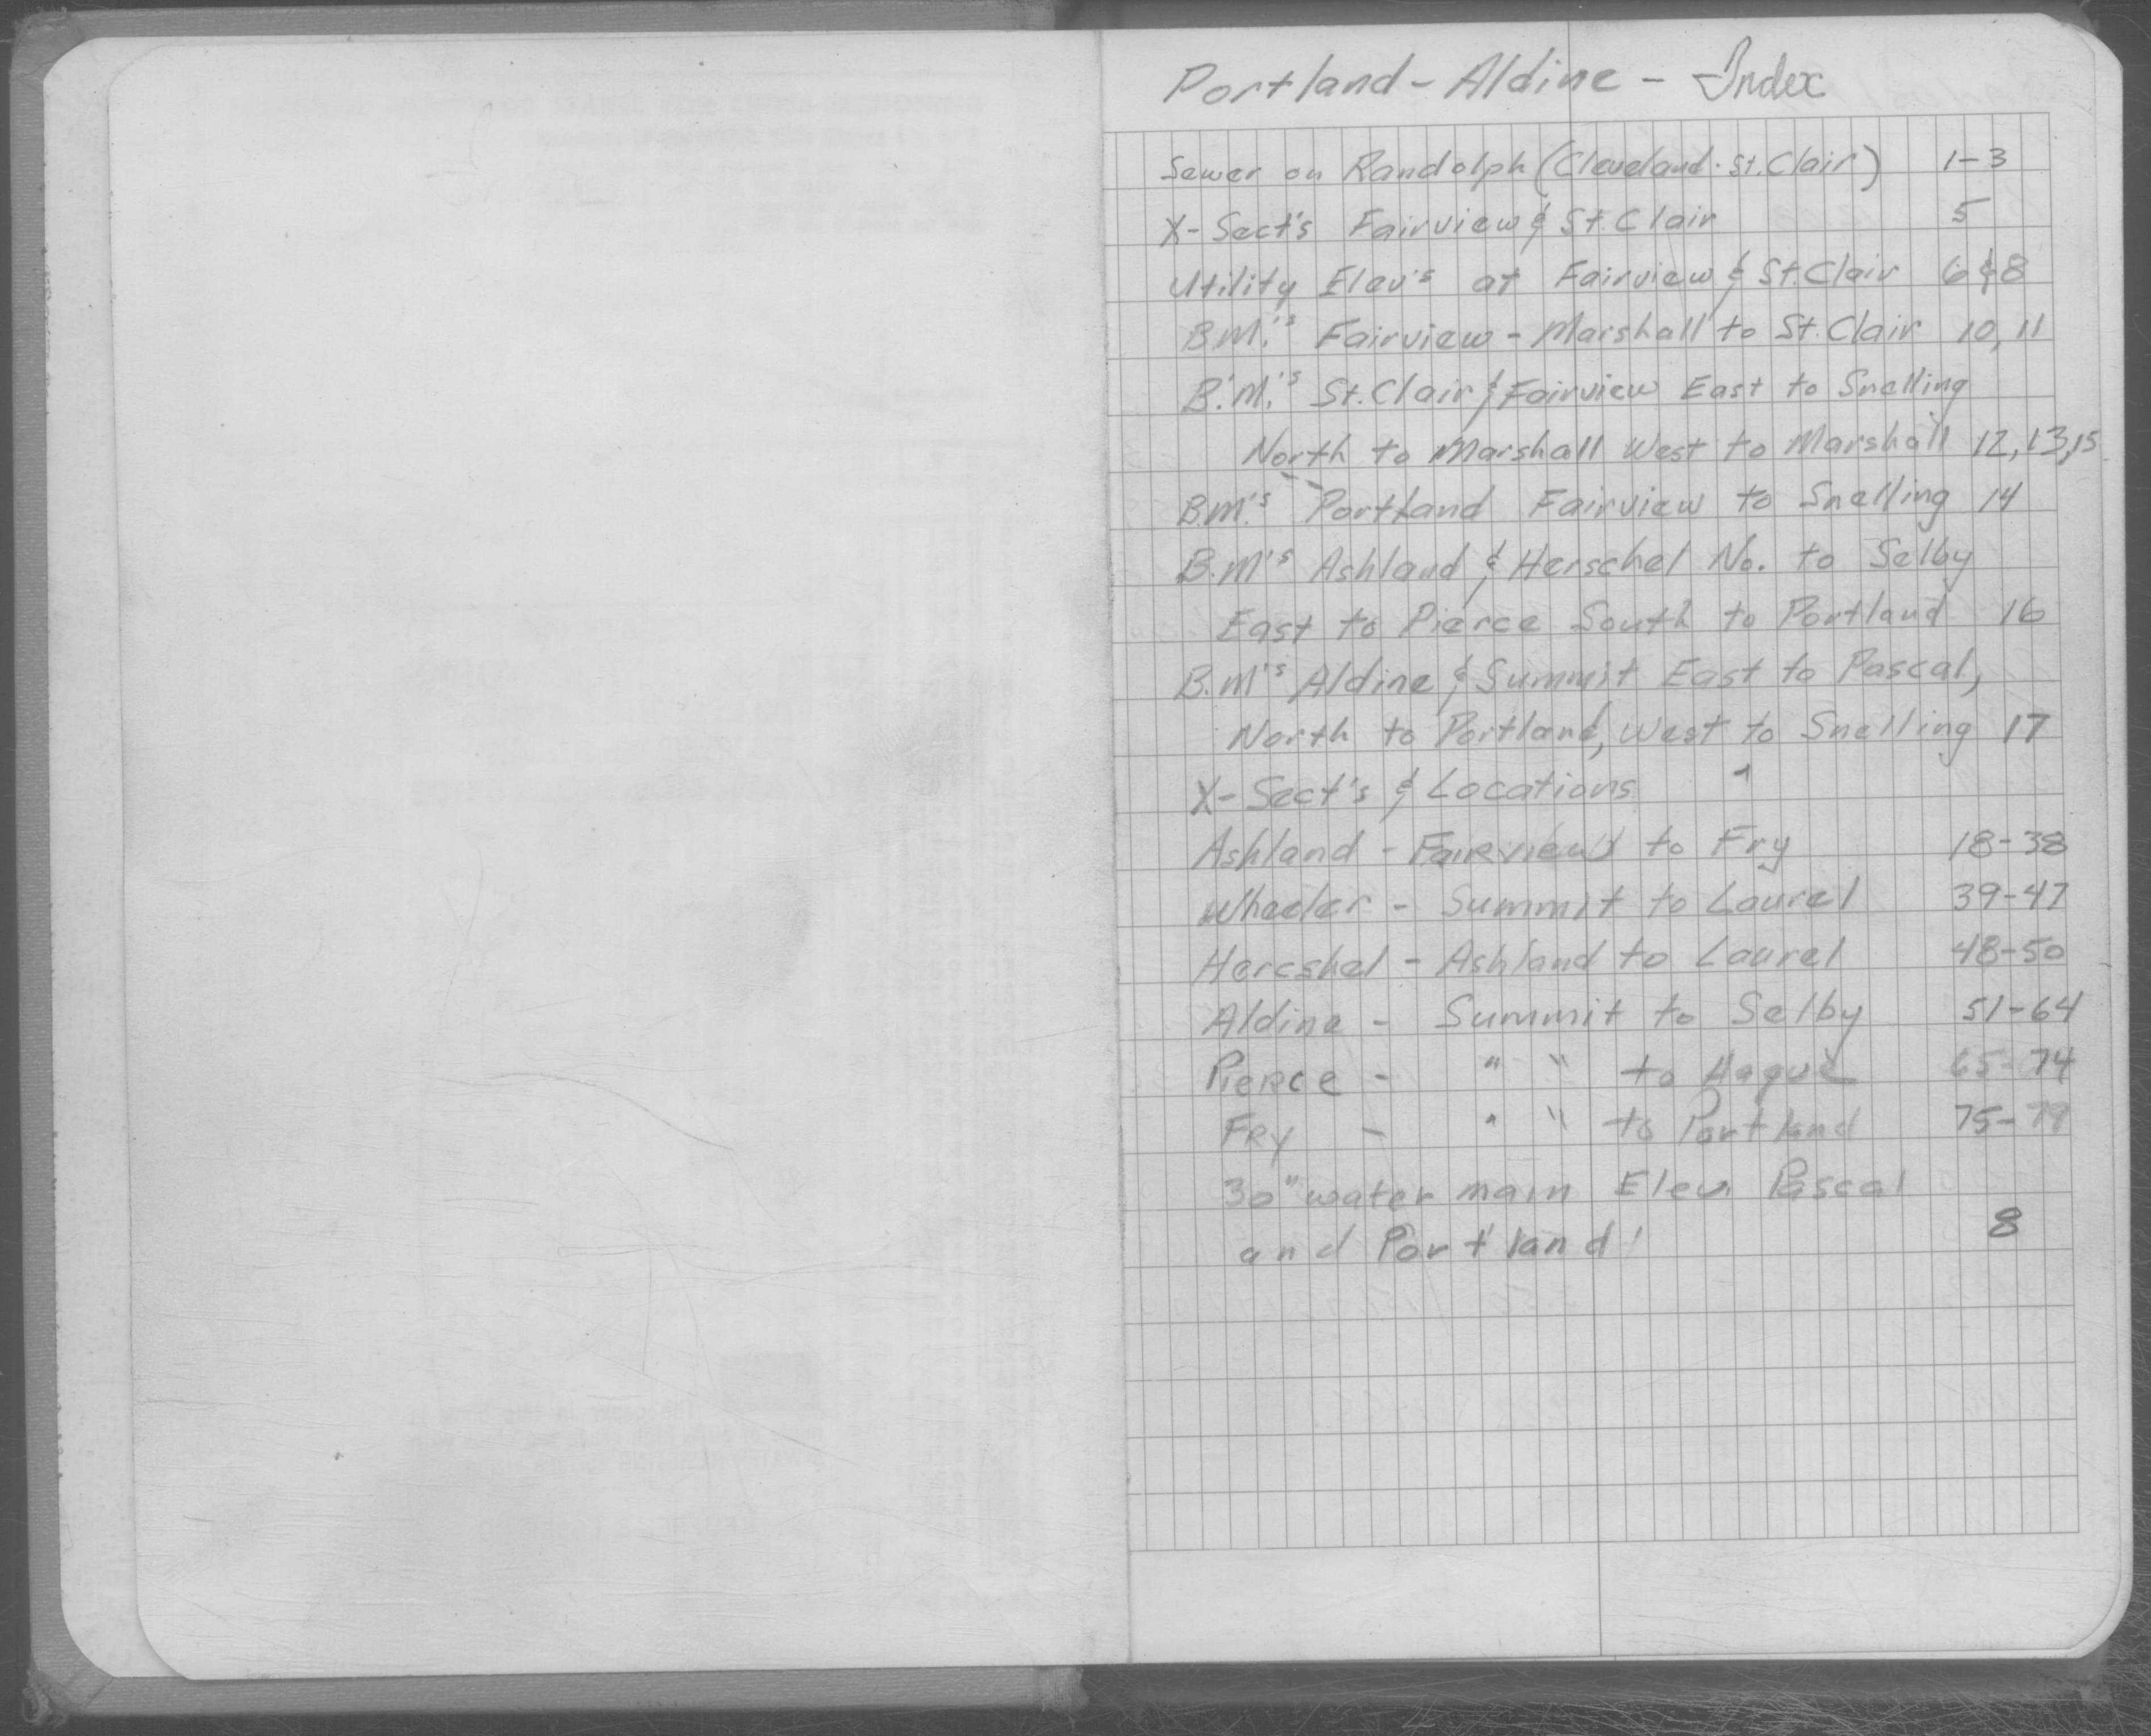 Portland - Aldine - Index
Sewer on Randolph (Cleveland - St. Clair) 1-3
X-Sect's Fairview & St. Clair 5
Utility Elev's at Fairview & St. Clair 6 & 8
B.M.'s Fairview - Marshall to St. Clair 10, 11
B.M.'s St. Clair & Fairview East to Snelling
North to Marshall West to Marshall 12, 13, 15
B.M.'s Portland Fairview to Snelling 14
B.M's Ashland & Herschel No. to Selby
East to Pierce South to Portland 16
B.M's Aldine & Summit East to Pascal,
North to Portland, West to Snelling 17
X-Sect's & Locations
Ashland - Fairview to Fry 18-38
Wheeler - Summit to Laurel 39-47
Hercshel - Ashland to Laurel 48-50
Aldine - Summit to Selby 51-64
Pierce - " " to Hague 65-74
Fry - " " to Portland 75-79
30" water main Elev. Pascal
and Portland 8